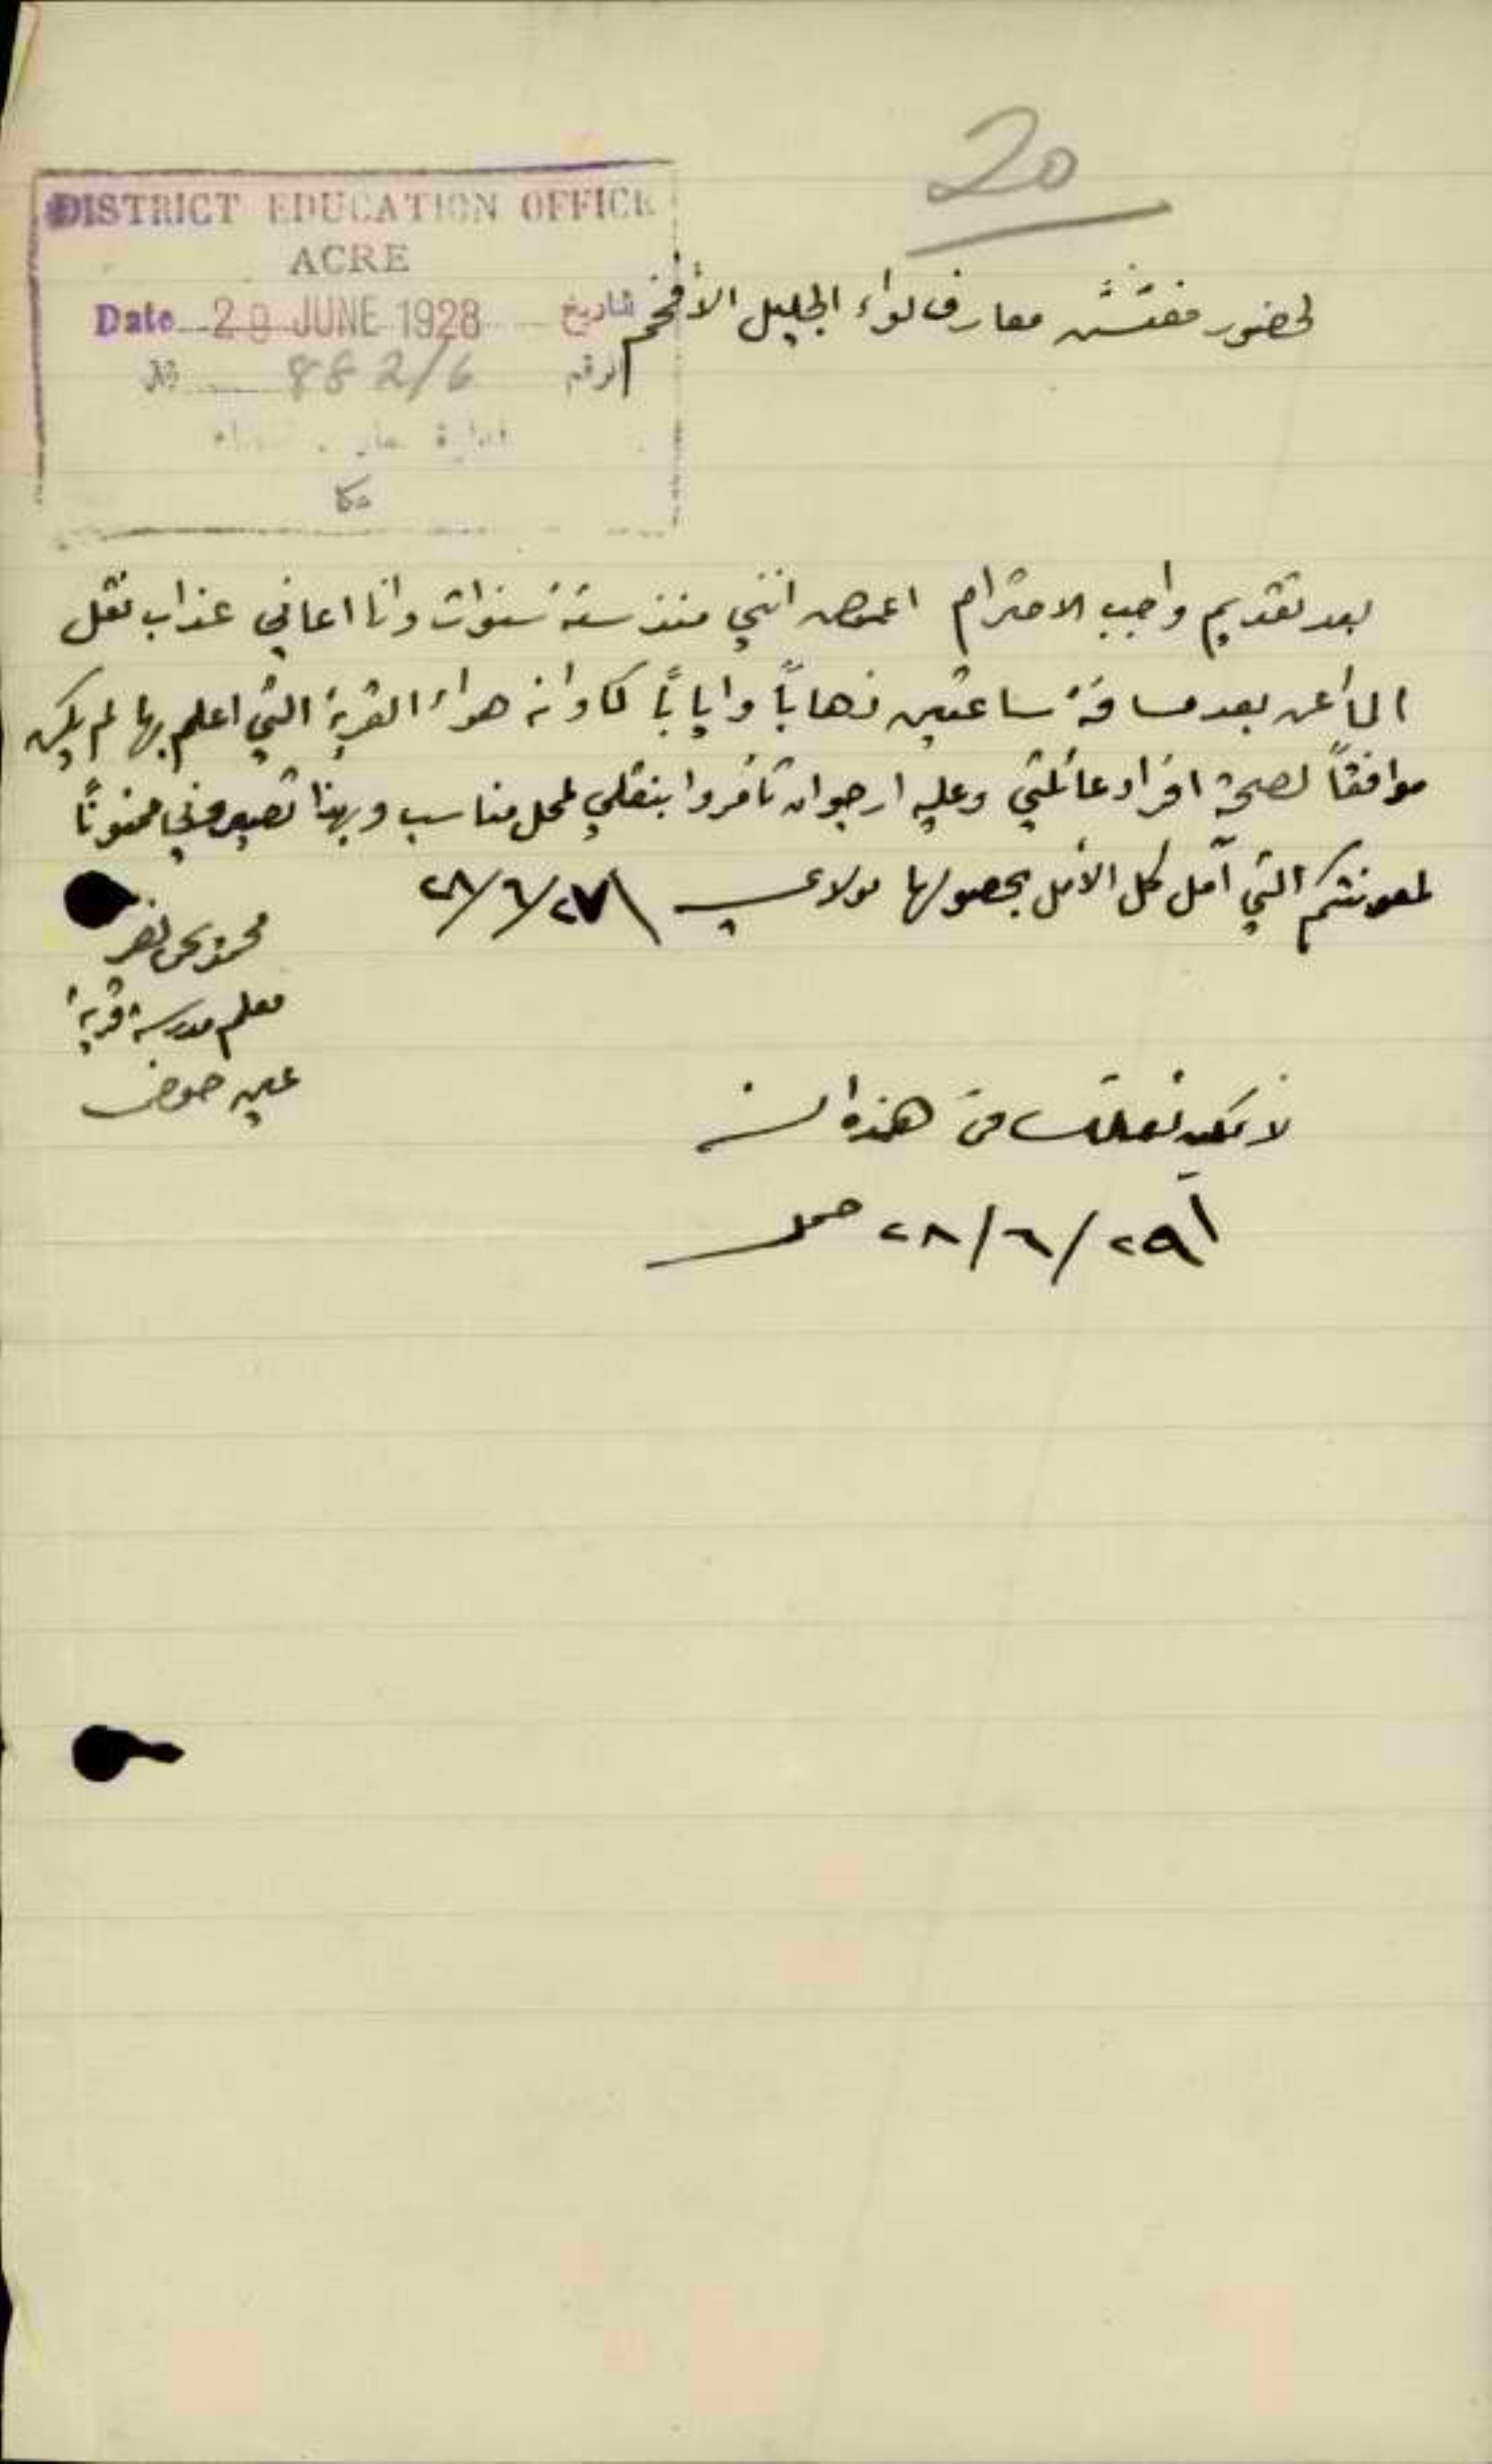 20
DISTRICT EDUCATION OFFICE
ACRE
Date 29 JUNE 1928 تاريخ
No 882/6 الرقم
عكا
لحضور مفتش معارف لواء الجليل الأفخم
بعد تقديم واجب الاحترام اعرض انني منذ ستة سنوات وانا اعاني عذاب نقل
الماء عن بعد مسافة ساعتين ذهاباً واياباً كما وانه هواء القرية التي اعلم بها لم يكن
موافقاً لصحة افراد عائلتي وعليه ارجو ان تأمروا بنقلي لمحل مناسب وبهذا تصيروني ممنوناً
لمعونتكم التي آمل كل الأمل بحصولها مولاي ٢٨/٦/٢٧
محمود
معلم مدرسة قرية
عين حوض
لا يمكن نقلك في هذه السنة
٢٨/٦/٢٩